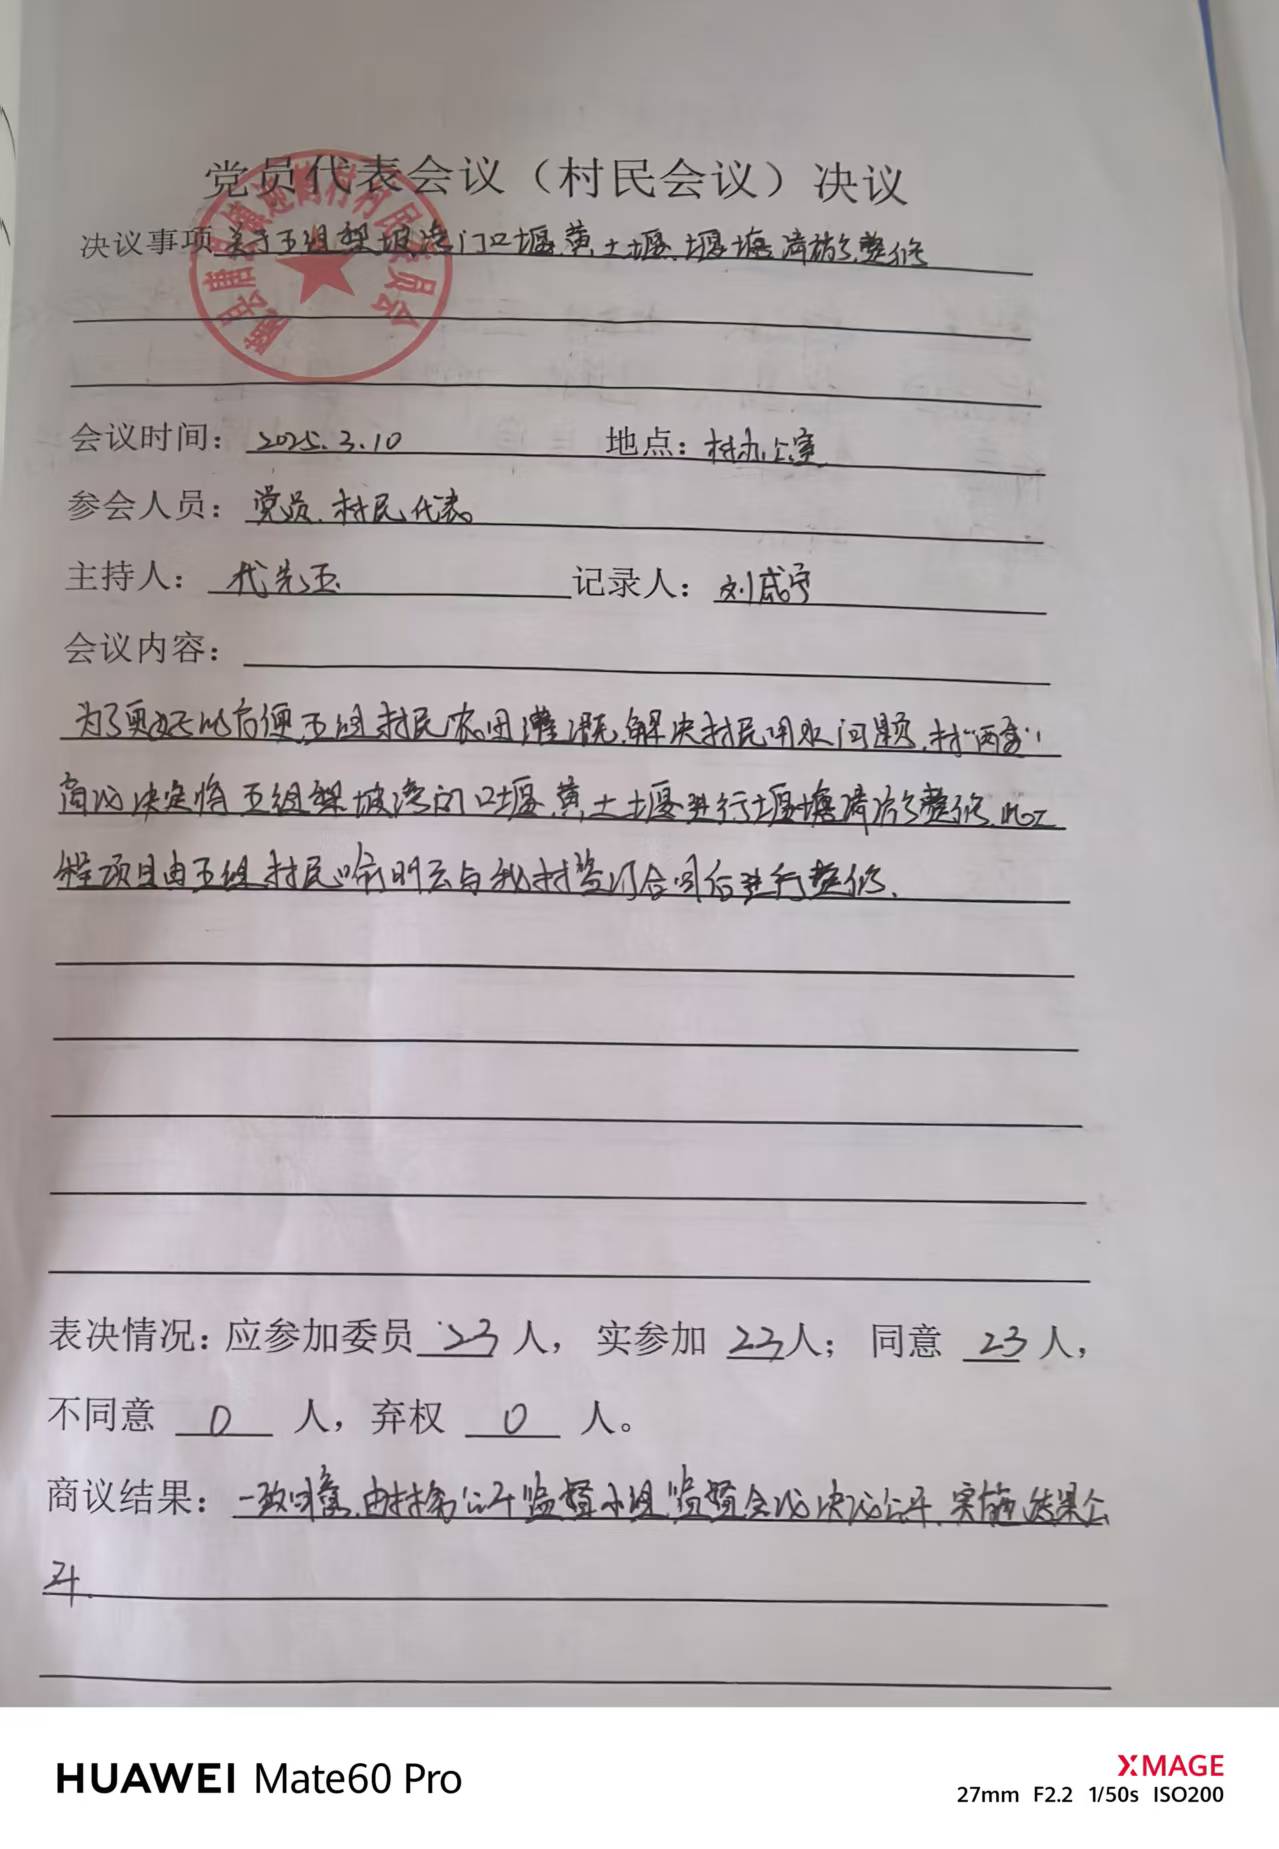 党员代表会议（村民会议）决议
决议事项 关于五组梨坡湾门口堰、黄土堰、堰塘清淤整修
会议时间：2025.3.10 地点：村办公室
参会人员：党员、村民代表
主持人：代先玉 记录人：刘咸宁
会议内容：
为了更好地方便五组村民农田灌溉、解决村民用水问题，村“两委”
商议决定将五组梨坡湾门口堰、黄土堰进行堰塘清淤整修，此工
程项目由五组村民喻明云与我村签订合同后进行整修。
表决情况：应参加委员 23 人， 实参加 23 人； 同意 23 人，
不同意 0 人，弃权 0 人。
商议结果：一致同意，由村务公开监督小组监督会议决议公开、实施结果公
开.
HUAWEI Mate60 Pro
XMAGE
27mm F2.2 1/50s ISO200